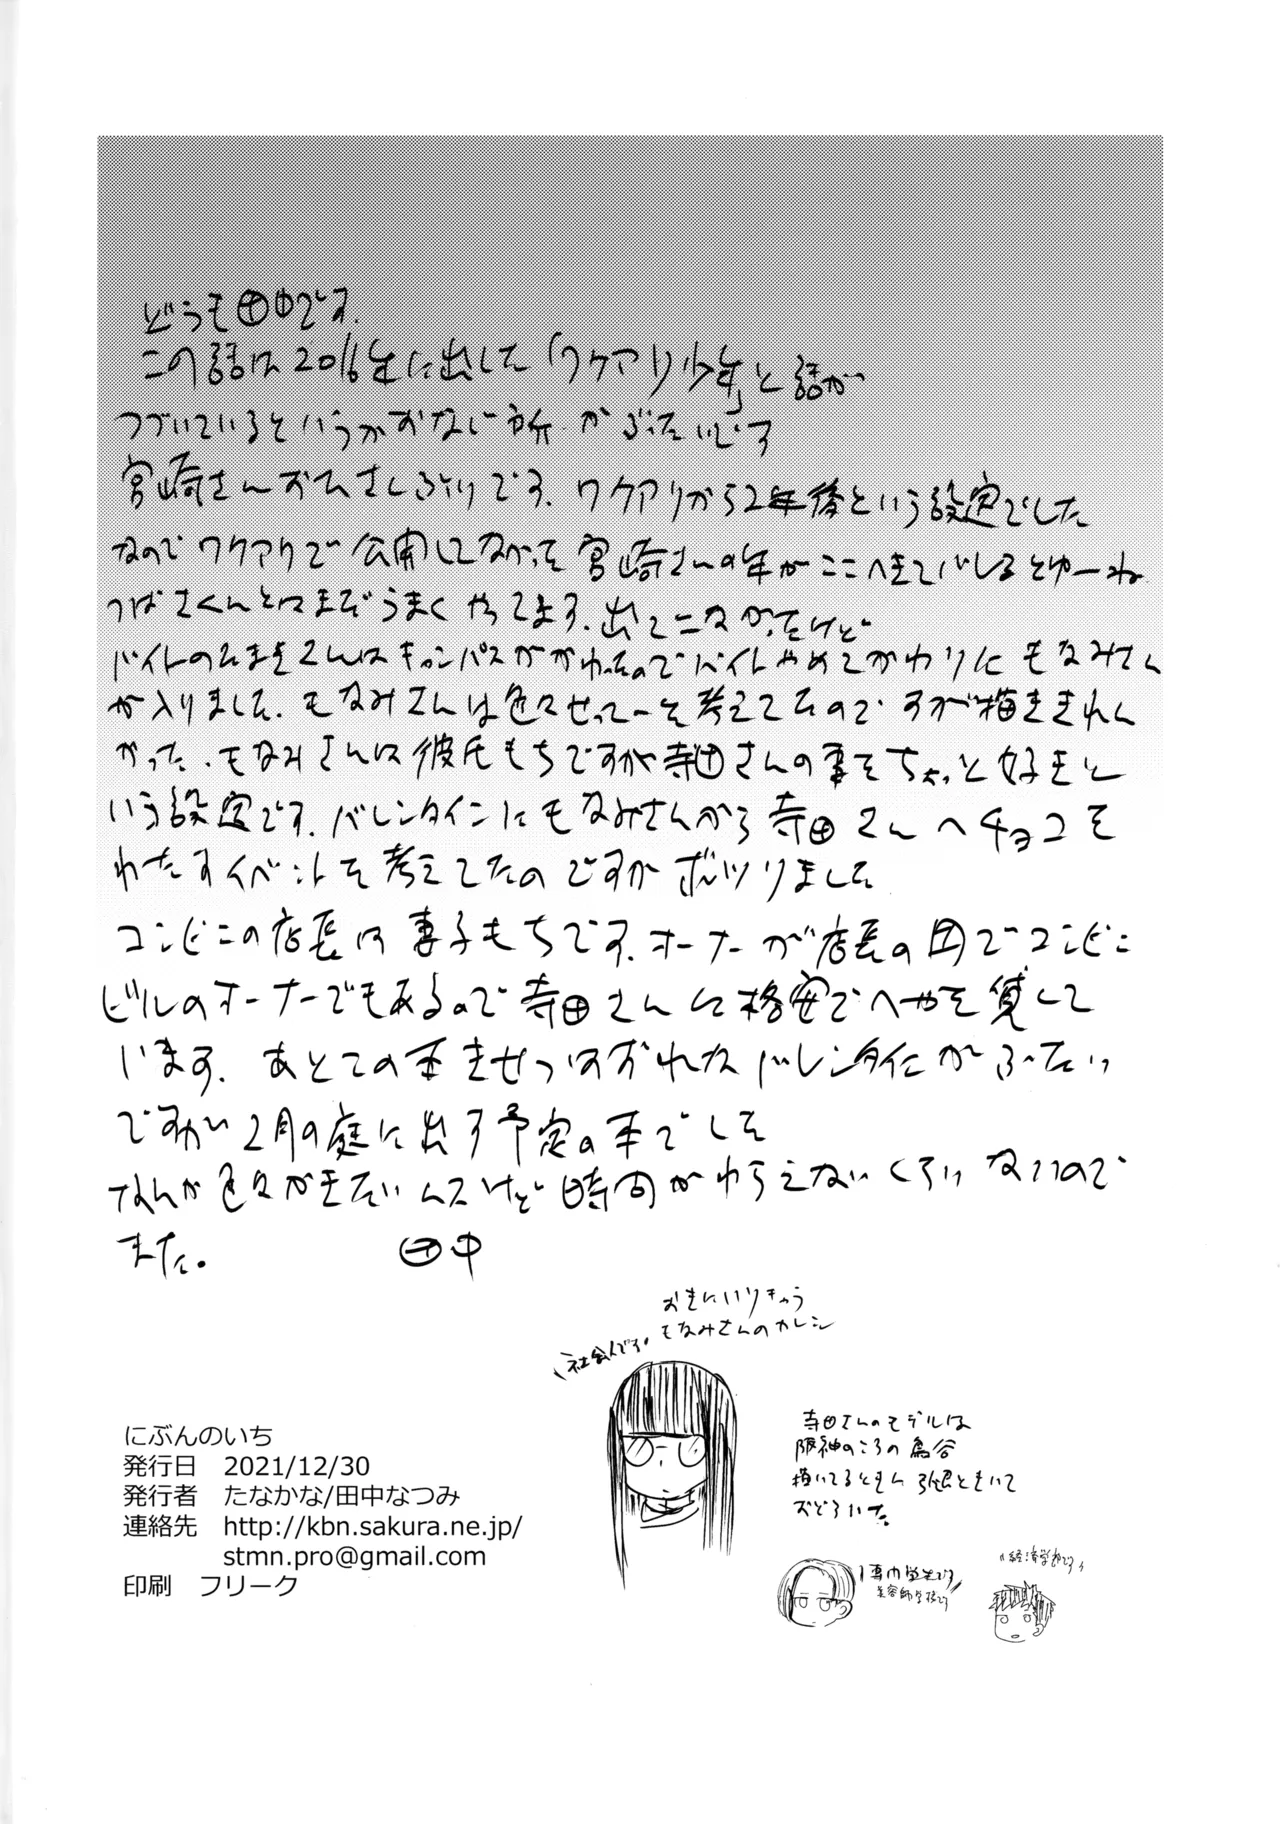 どうも田中です。
この話は2016年に出した「ワケアリ少年」と話が
つづいているというかおなじ所がぶたいです
宮崎さんおひさしぶりです。ワケアリから2年後という設定でした
なのでワケアリで公開してなかった宮崎さんの年がここへきてバレるとゆーね
つばさくんとはまだうまくやってます。出てこなかったけど
バイトのたまきさんはキャンパスがかわったのでバイトやめてかわりにもなみさん
が入りました。もなみさんは色々せってーを考えてたのですが描ききれん
かった。もなみさんは彼氏もちですが寺田さんの事をちょっと好きと
いう設定です。バレンタインにもなみさんから寺田さんへチョコを
わたすイベントを考えてたのですがボツりました
コンビニの店長は妻子もちです。オーナーが店長の
ビルのオーナーでもあるので寺田さんに格安でへやを貸して
います。あとこの本きせつはずれたバレンタインがぶたい
ですがい2月の庭に出す予定の本でした
なんか色々がきたいんスけど時間がわらえないくらいないので
また。 田中
おきにいりきゅう
もなみさんのカレシ
社会人です
寺田さんのモデルは
阪神のころの鳥谷
描いてるときに引退ときいて
おどろいた。
専門学生です
美容師学校です
経済学部です
にぶんのいち
発行日 2021/12/30
発行者 たなかな/田中なつみ
連絡先 http://kbn.sakura.ne.jp/
stmn.pro@gmail.com
印刷 フリーク